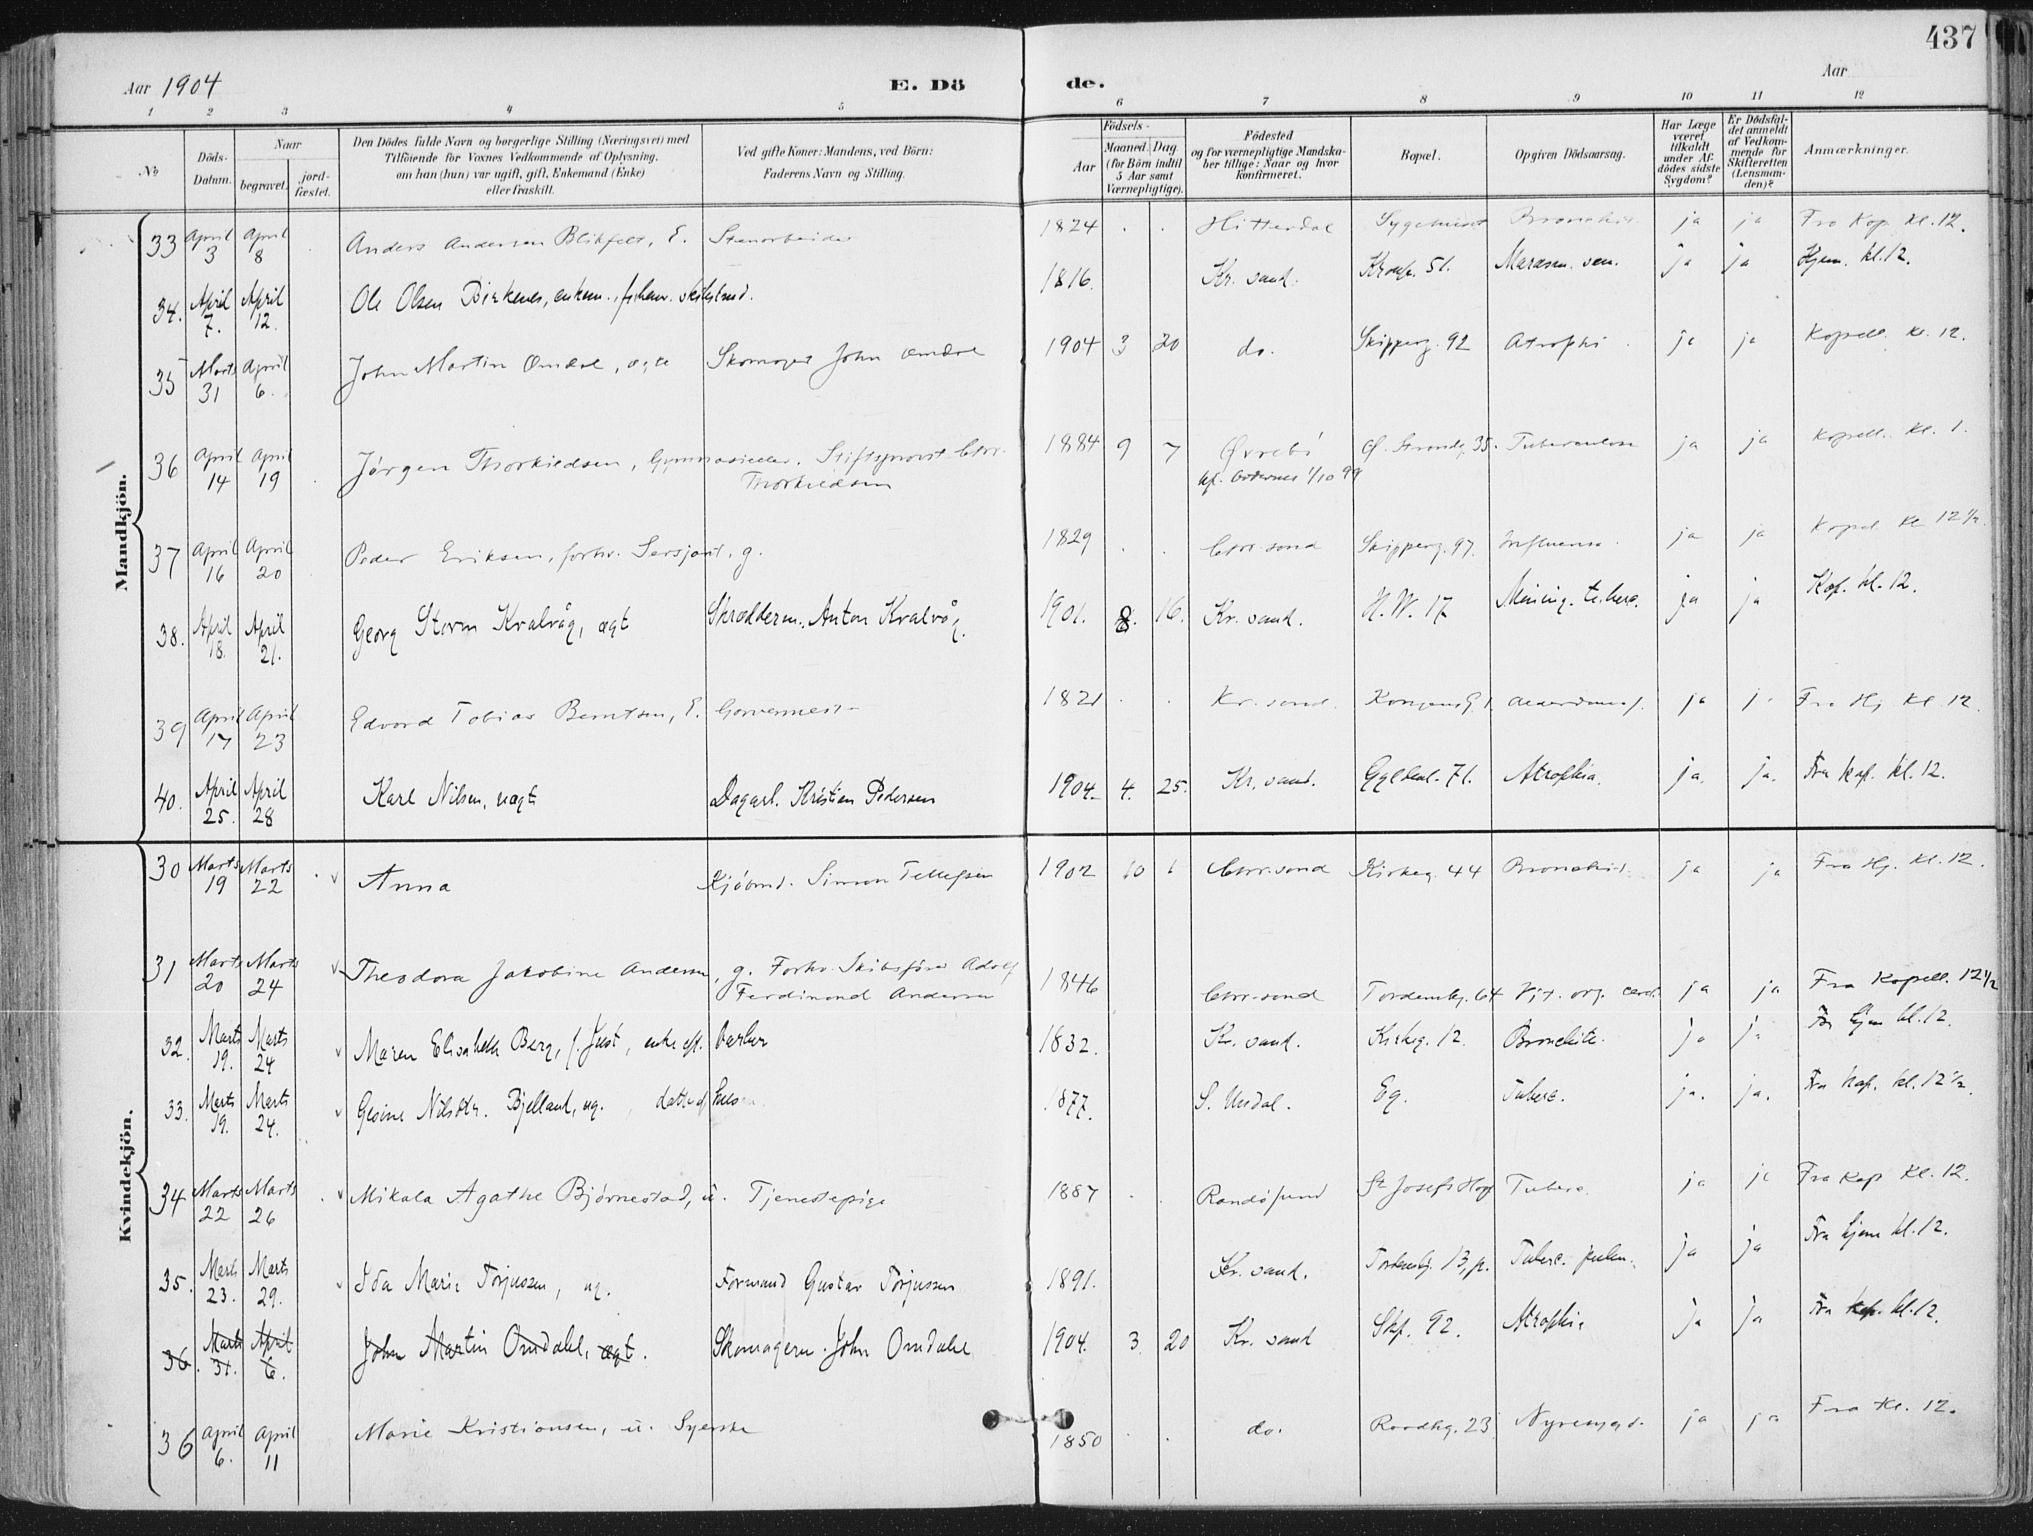 437
Aar 1904
E. Dö de.
Aar
1 2 3 4 5 6 7 8 9 10 11 12
No
Döds-Datum.
Naar
begravet.
jord-fæstet.
Den Dödes fulde Navn og borgerlige Stilling (Næringsvei) med
Tilföiende for Voxnes Vedkommende af Oplysning,
om han (hun) var ugift, gift, Enkemand (Enke)
eller fraskilt.
Ved gifte Koner: Mandens, ved Börn:
Faderens Navn og Stilling.
Födsels-
Aar
Maaned. Dag
(for Börn indtil
5 Aar samt
Værnepligtige).
Födested
og for værnepligtige Mandska-
ber tillige: Naar og hvor
konfirmeret.
Bopæl.
Opgiven Dödsaarsag.
Har Læge
været
tilkaldt
under Af-
dödes sidste
Sygdom?
Er Dödsfal-
det anmeldt
af Vedkom-
mende for
Skifteretten
(Lensman-
den)?
Anmærkninger.
Mandkjön.
33 April 3 April 8 Anders Andersen Blikfelt, E. Stenarbeider 1824 Hitterdal Bronchit. ja ja Fra Kap. kl. 12.
34. April 7. April 12. Ole Olsen Birkenes, enkem., 1816. Kr. sand. Kronp. 51. Marasm. sen. ja ja Hjem. kl. 12.
35 Marts 31 April 6. John Martin Omdal, ægte Skomager John Omdal 1904 3 20 do. Skipperg. 92 Atrophi ja ja Kapell. kl. 12.
36 April 14 April 19 Jörgen Thorkildsen, Stiftsprovst Chr. Thorkildsen 1884 9 7 Øvrebö Ø. Strandg. 35. Tuberculose ja ja Kapell. kl. 1.
1/10 99
37 April 16 April 20 Peder Eriksen, forhv. Sersjant, g. 1829 Chr.sand Skipperg. 97. Influensa ja ja Kapel kl 12 1/2.
38. April 18. April 21. Georg Storm Kvalvåg, ægt Skrædderm. Anton Kvalvåg. 1901. 8. 16. Kr. sand. H. W. 17 Mening. tuberc. ja ja Kap. kl. 12.
39 April 17 April 23 Edvard Tobias Berntsen, E. 1821 Kr. sand. Kongensg. 1 ja ja Fra Hj kl 12.
40. April 25. April 28 Karl Nilsen, uægt Dagarb. Kristian Pedersen 1904 4. 25. Kr. sand. Gyldenl. 71. Atrophia. ja. ja. Fra kap. kl. 12.
Kvindekjön.
30 Marts 19 Marts 22 Anna Kjöbmd. Simon Tellefsen 1902 10 1 Chr.sand Kirkeg. 44 Bronchit. ja ja Fra Hj. kl. 12.
31 Marts 20 Marts 24 Theodora Jakobine Andersen, g. Forhv. Skibsförer Adolf
Ferdinand Andersen 1846 Chr.sand Tordenskg. 64 Vit. org. cord. ja ja Fra Kapell. 12 1/2
32. Marts 19. Marts 24 Maren Elisabeth Berg, f. Just, enke eft. 1832. Kr. sand. Kirkeg. 12. Bronchite. ja ja Fra hjem kl. 12.
33. Marts 19. Marts 24. Gesine Nilsdtr. Bjelland, ug. datter af 1877. Eg. Tuberc. ja. ja. Fra kap. kl. 12 1/2.
34 Marts 22 Marts 26 Mikala Agathe Bjørnestad, u. Tjenestepige 1887 Randösund St. Josefs Hosp Tuberc. ja ja Fra Kap kl. 12.
35. Marts 23. Marts 29. Ida Marie Torjussen, ug. Formand Gustav Torjussen 1891. Kr. sand. Tordenskj. 13, p. Tuberc. pulm. ja ja Fra hjem kl. 12.
36. Marts 31. April 6. John Martin Omdahl, ægt. Skomagerm. John Omdahl 1904. 3 20 Kr. sand Skp. 92. Atrophia ja ja Fra kap. kl. 12.
36 April 6. April 11 Marie Kristiansen, u. Syerske 1850 do. Raadhg. 23 Nyresygd. ja ja Fra kl. 12.